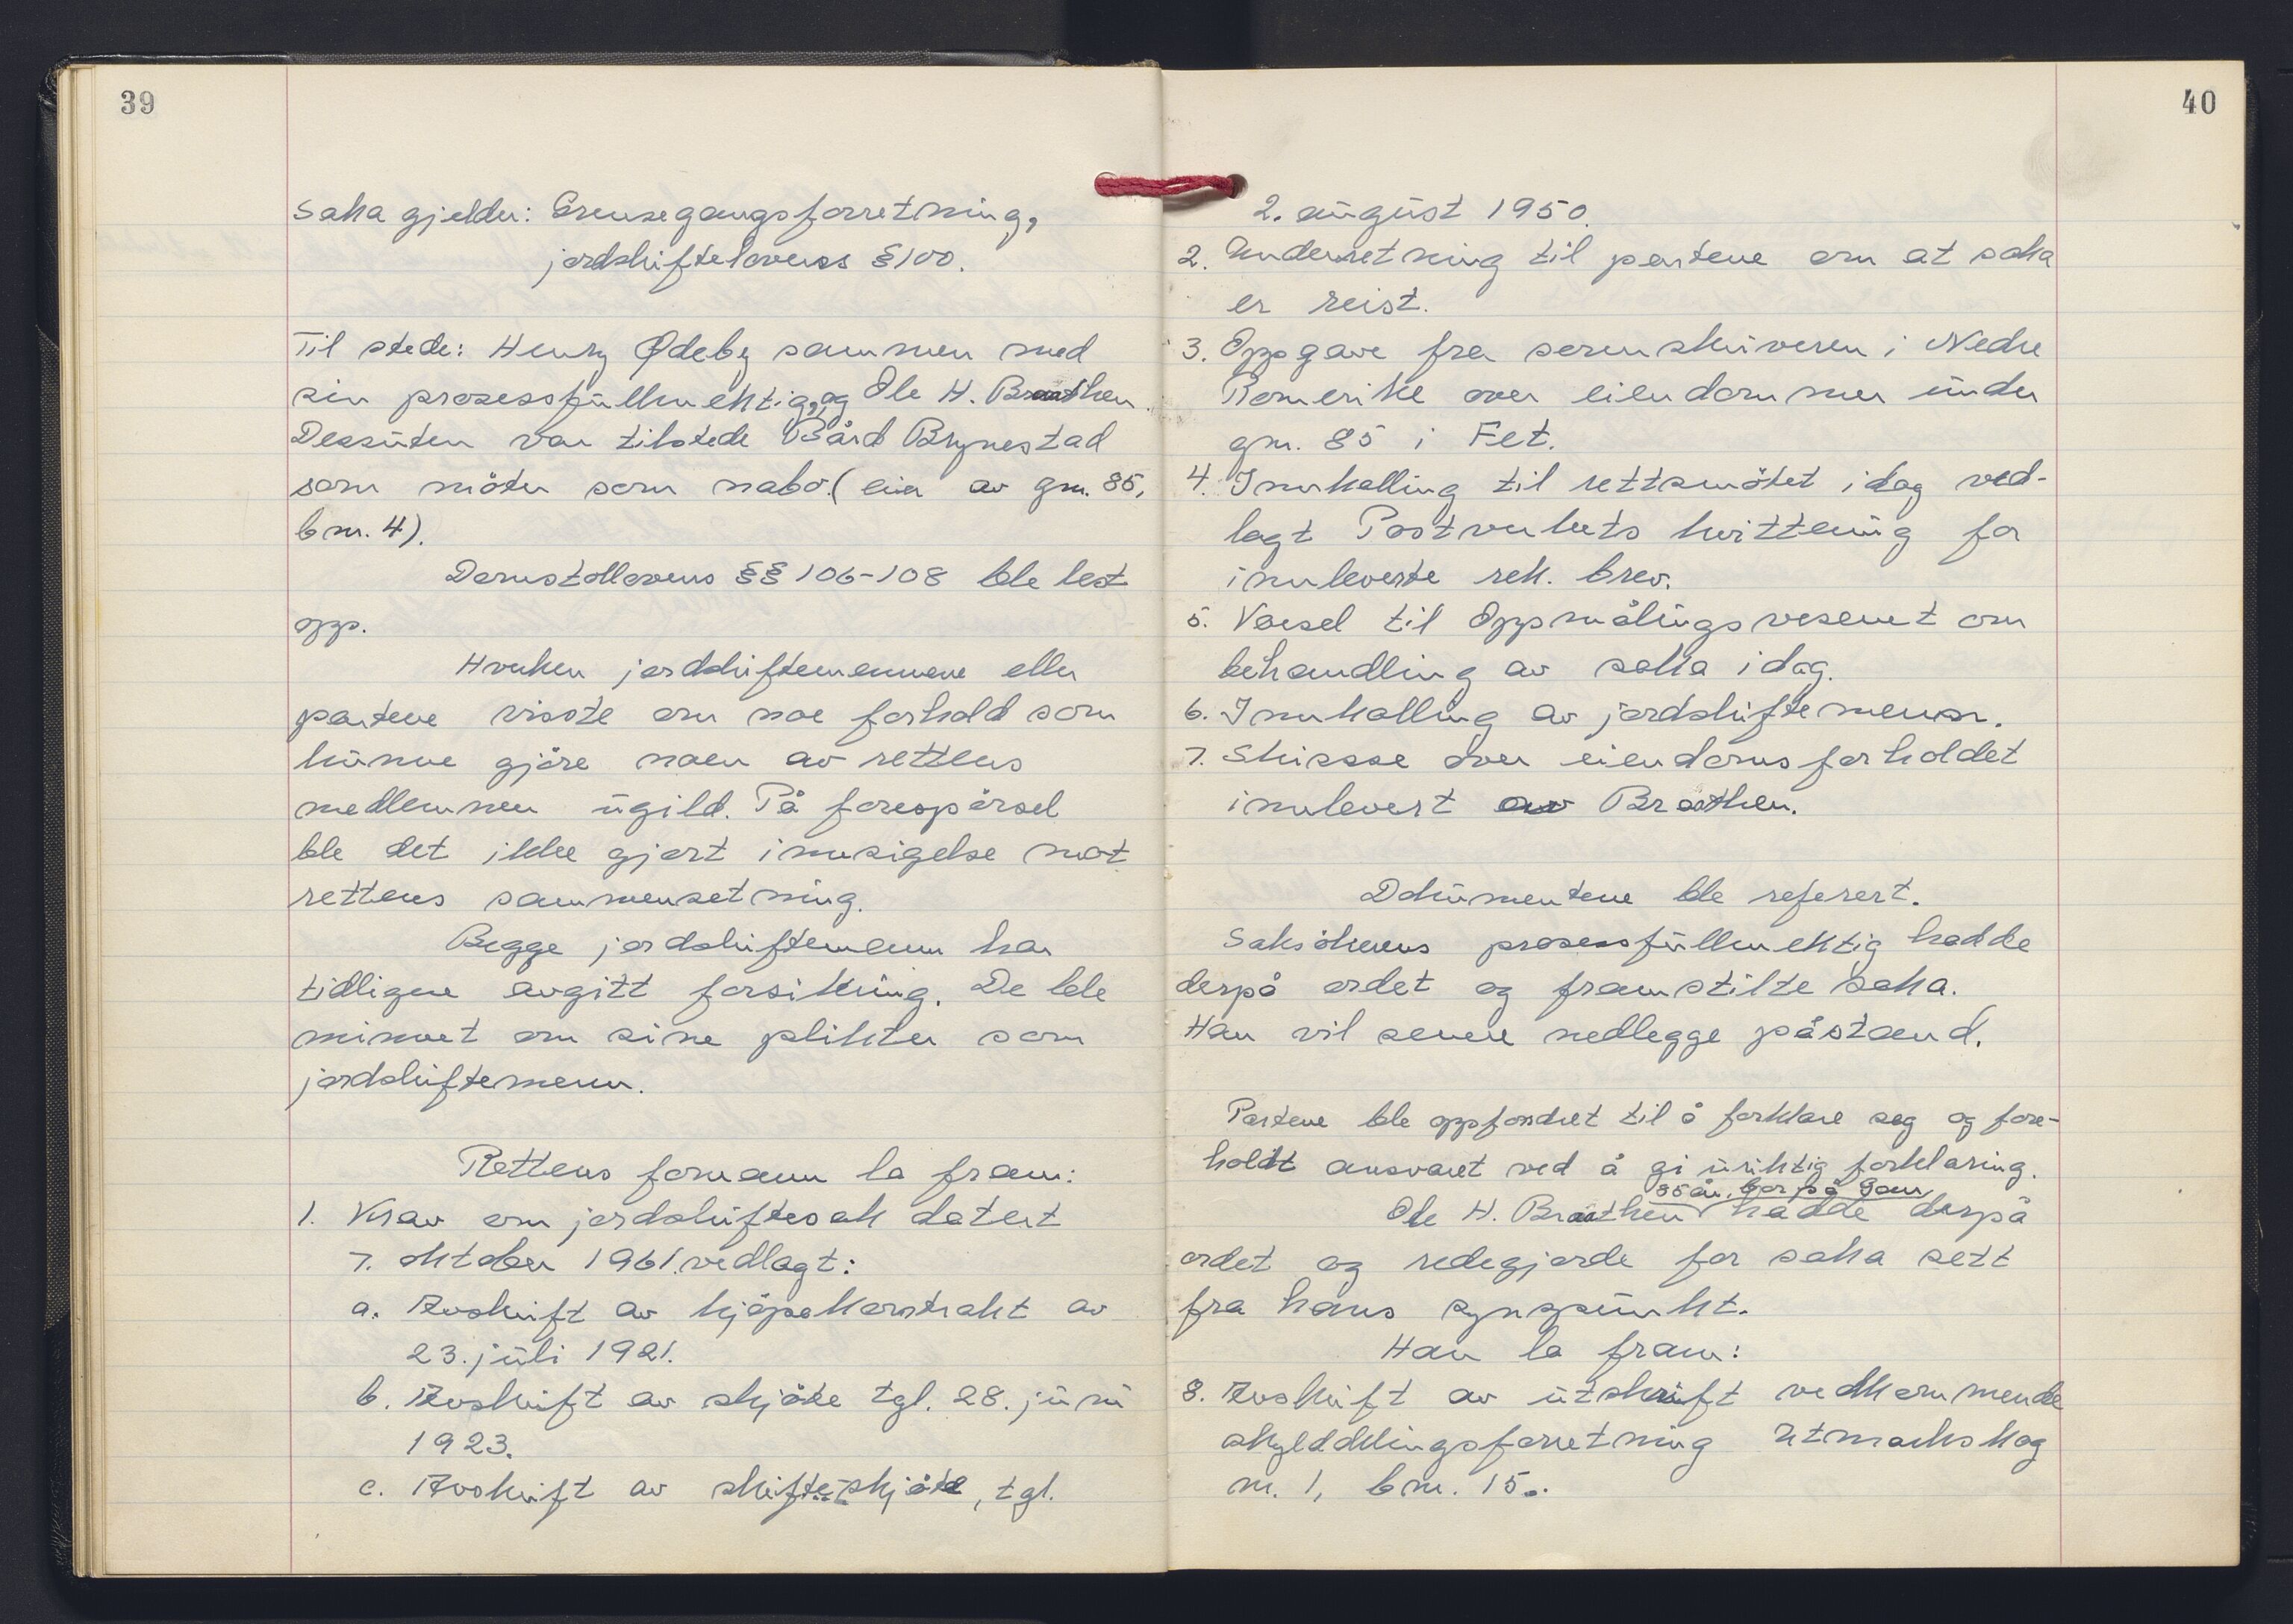 39
Saka gjelder: Grensegangsforretning,
jordskiftelovens § 100.
Til stede: Henry Ødeby sammen med
sin prosessfullmektig, og Ole H. Braathen.
Dessuten var tilstede Bård Brynestad
som møter som nabo. (eier av gnr. 85,
bnr. 4).
Domstollovens §§ 106-108 ble lest
opp.
Hverken jordskiftemennene eller
partene visste om noe forhold som
kunne gjøre noen av rettens
medlemmer ugild. På forespørsel
ble det ikke gjort innsigelse mot
rettens sammensetning.
Begge jordskiftemenn har
tidligere avgitt forsikring. De ble
minnet om sine plikter som
jordskiftemenn.
Rettens formann la fram:
1. Krav om jordskiftesak datert
7. oktober 1961. vedlagt:
a. Avskrift av kjøpekontrakt av
23. juli 1921.
b. Avskrift av skjøte tgl. 28. juni
1923.
c. Avskrift av skifteskjøte, tgl.
40
2. august 1950.
2. Underretning til partene om at saka
er reist.
3. Oppgave fra sorenskriveren i Nedre
Romerike over eiendommer under
gnr. 85 i Fet.
4. Innkalling til rettsmøtet idag ved-
lagt Postverkets kvittering for
innleverte rek. brev.
5. Varsel til Oppmålingsvesenet om
behandling av saka idag.
6. Innkalling av jordskiftemenn.
7. Skissse over eiendomsforholdet
innlevert av Braathen.
Dokumentene ble referert.
Saksøkerens prosessfullmektig hadde
derpå ordet og framstilte saka.
Han vil senere nedlegge påstand.
Partene ble oppfordret til å forklare seg og fore-
holdt ansvaret ved å gi uriktig forklaring.
år, bor på
Ole H. Braathen hadde derpå
ordet og redegjorde for saka sett
fra hans synspunkt.
Han la fram:
8. Avskrift av utskrift vedkommende
skylddelingsforretning Utmarkskog
nr. 1, bnr. 15.